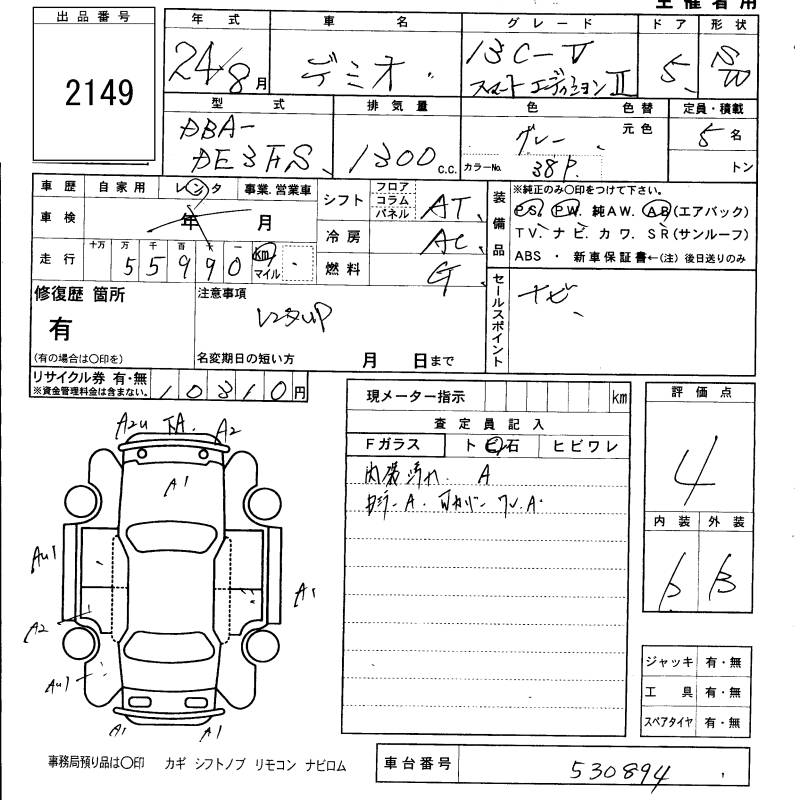 主 催 者 用
出品番号
2149
年 式 車 名 グレード ドア 形状
24/8月 デミオ 13C-V スマートエディションⅡ 5 S/W
型 式 排気量 色 色替 定員・積載
DBA-DE3FS 1300 c.c. グレー 元色 5名
カラーNo. 38P トン
車歴 自家用 レンタ 事業.営業車
車検 年 月
走行 十万 万 千 百 十 一 km マイル
5 5 9 9 0
シフト フロア コラム パネル AT
冷房 AC
燃料 G
装備品
※純正のみ〇印をつけて下さい。
PS. PW. 純AW. AB(エアバック)
TV. ナビ. カワ. SR(サンルーフ)
ABS ・ 新車保証書←(注) 後日送りのみ
セールスポイント
ナビ
修復歴 箇所
有
(有の場合は〇印を)
注意事項
レンタUP
名変期日の短い方 月 日まで
リサイクル券 有・無
※資金管理料金は含まない。
10310円
現メーター指示 km
査定員記入
Fガラス ト ビ 石 ヒビワレ
内装汚れ A
A.
A.
評価点
4
内装 外装
B B
A2U A. A2
A1
AU1
A2
AU1
A1
A1 A1
ジャッキ 有・無
工 具 有・無
スペアタイヤ 有・無
事務局預り品は〇印 カギ シフトノブ リモコン ナビロム
車台番号 530894